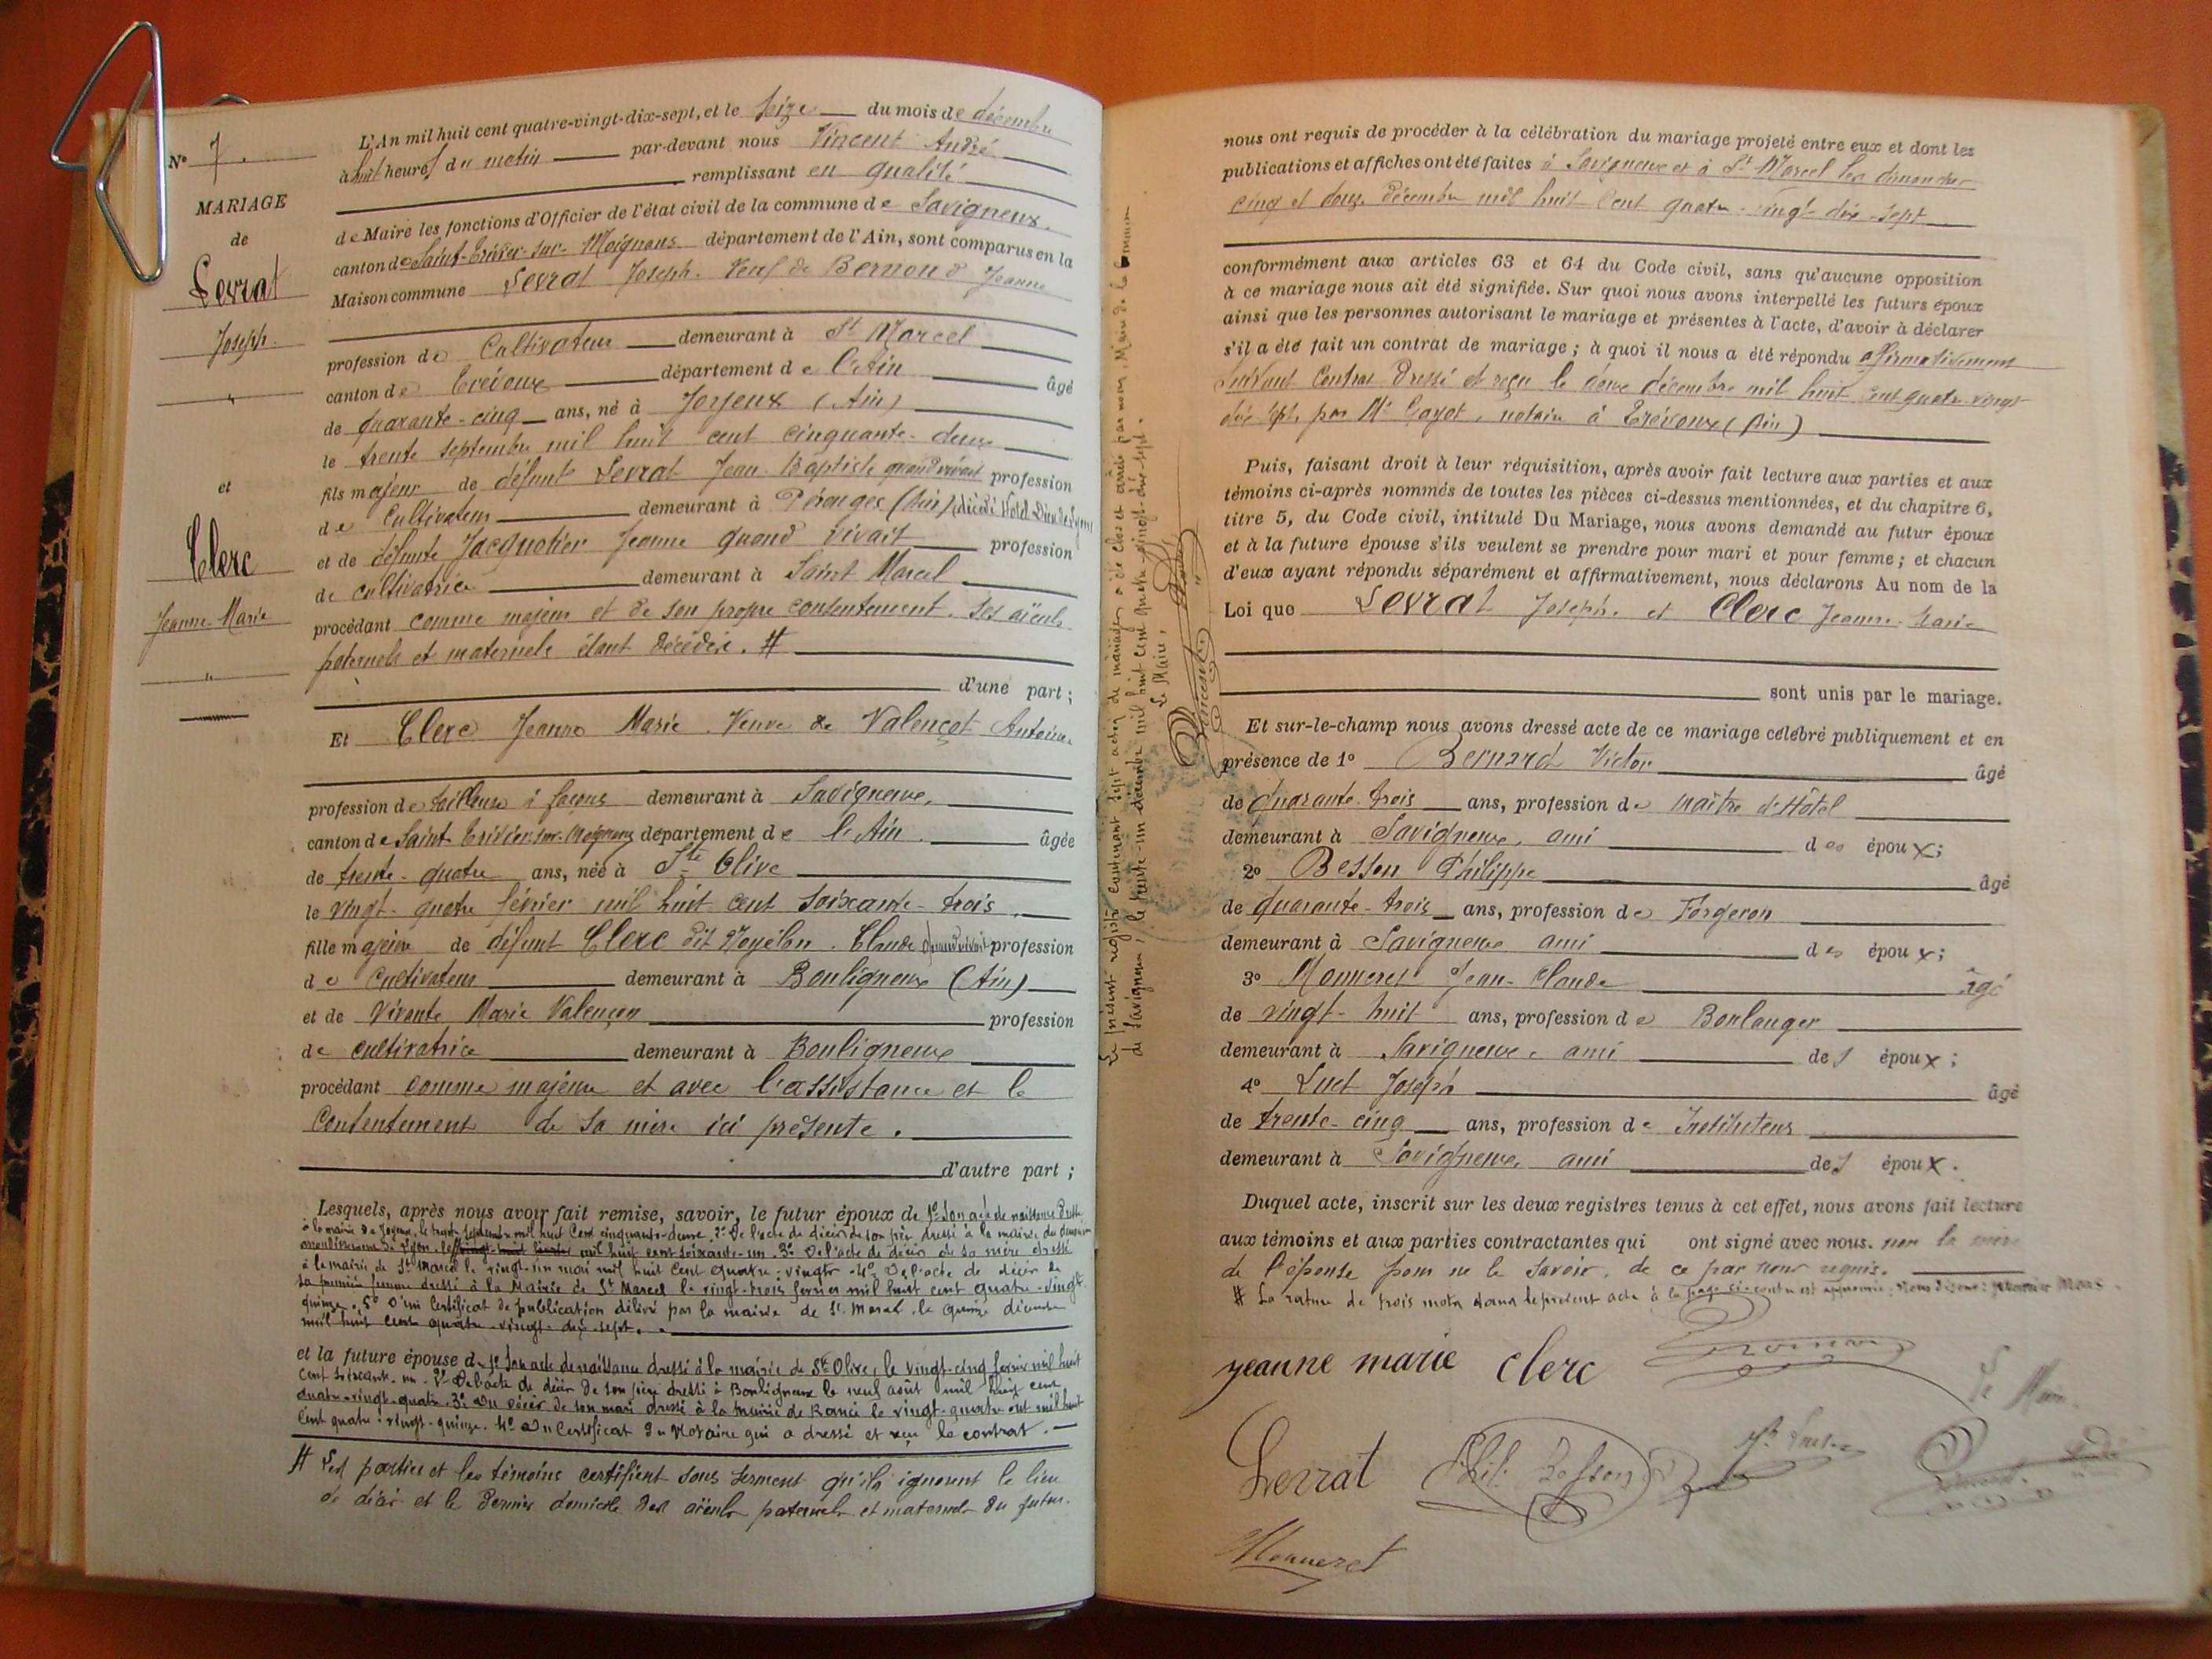 N° 7.
MARIAGE
de
Levrat
Joseph.
et
Clerc
Jeanne-Marie
L'An mil huit cent quatre-vingt-dix-sept, et le seize du mois de décembre
à huit heures du matin par-devant nous Vincent André
remplissant en qualité
de Maire les fonctions d'Officier de l'état civil de la commune de Savigneux.
canton de Saint-Trivier-sur-Moignans département de l'Ain, sont comparus en la
Maison commune Levrat Joseph. Veuf de Bernoud Jeanne
profession de Cultivateur demeurant à St Marcel
canton de Trévoux département de l'Ain âgé
de quarante-cinq ans, né à Joyeux (Ain)
le trente septembre mil huit cent cinquante-deux
fils majeur de défunt Levrat Jean-Baptiste quand vivait profession
de Cultivateur demeurant à Pérouges (Ain), décédé Hôtel-Dieu de Lyon
et de défunte Jacquetier Jeanne quand vivait profession
de cultivatrice demeurant à Saint Marcel
procédant comme majeur et de son propre consentement. Ses aïeuls
paternels et maternels étant décédés. #
d'une part;
Et Clerc Jeanne Marie. Veuve de Valençot Antoine.
profession de tailleuse à façons demeurant à Savigneux,
canton de Saint Trivier-sur-Moignans département de l'Ain. âgée
de trente-quatre ans, née à Ste Olive
le vingt-quatre février mil huit cent soixante-trois.
fille majeure de défunt Clerc dit Claude quand vivait profession
de Cultivateur demeurant à Bouligneux (Ain)
et de Vivante Marie Valençon profession
de cultivatrice demeurant à Bouligneux
procédant comme majeure et avec l'assistance et le
Consentement de sa mère ici présente.
d'autre part;
Lesquels, après nous avoir fait remise, savoir, le futur époux de 1° Son acte de naissance dressé
à la mairie de Joyeux, le trente septembre mil huit cent cinquante-deux. 2° De l'acte de décès de son père dressé à la mairie du deuxième
arrondissement de Lyon, le mil huit cent soixante-un. 3° De l'acte de décès de sa mère dressé
à la mairie de St Marcel le vingt-un mai mil huit cent quatre-vingts. 4° De l'acte de décès de
sa première femme dressé à la Mairie de St Marcel le vingt-trois février mil huit cent quatre-vingt-
quinze. 5° D'un Certificat de publication délivré par la mairie de St Marcel le quinze décembre
mil huit cent quatre-vingt-dix-sept.
et la future épouse de 1° Son acte de naissance dressé à la mairie de Ste Olive, le vingt-cinq février mil huit
cent soixante. 2° De l'acte de décès de son père dressé à Bouligneux le neuf août mil huit cent
quatre-vingt-quatre. 3° Du décès de son mari dressé à la mairie de Rancé le vingt-quatre août mil huit
cent quatre-vingt-quinze. 4° Du Certificat du Notaire qui a dressé et reçu le contrat.
# Les parties et les témoins certifient sous serment qu'ils ignorent le lieu
de décès et le dernier domicile des aïeuls paternels et maternels du futur.
Le présent registre contenant sept actes de mariages a été clos et arrêté par nous, Maire de la commune
de Savigneux, le trente-un décembre mil huit cent quatre-vingt-dix-sept.
Le Maire,
nous ont requis de procéder à la célébration du mariage projeté entre eux et dont les
publications et affiches ont été faites à Savigneux et à St Marcel les dimanches
cinq et douze décembre mil huit cent quatre-vingt-dix-sept
conformément aux articles 63 et 64 du Code civil, sans qu'aucune opposition
à ce mariage nous ait été signifiée. Sur quoi nous avons interpellé les futurs époux
ainsi que les personnes autorisant le mariage et présentes à l'acte, d'avoir à déclarer
s'il a été fait un contrat de mariage; à quoi il nous a été répondu affirmativement
suivant Contrat dressé et reçu le deux décembre mil huit cent quatre-vingt
dix-sept par Me notaire à Trévoux (Ain)
Puis, faisant droit à leur réquisition, après avoir fait lecture aux parties et aux
témoins ci-après nommés de toutes les pièces ci-dessus mentionnées, et du chapitre 6,
titre 5, du Code civil, intitulé Du Mariage, nous avons demandé au futur époux
et à la future épouse s'ils veulent se prendre pour mari et pour femme; et chacun
d'eux ayant répondu séparément et affirmativement, nous déclarons Au nom de la
Loi que Levrat Joseph. et Clerc Jeanne-Marie
sont unis par le mariage.
Et sur-le-champ nous avons dressé acte de ce mariage célébré publiquement et en
présence de 1° Bernard Victor âgé
de quarante-trois ans, profession de maître d'Hôtel
demeurant à Savigneux, ami des époux;
2° Besson Philippe âgé
de quarante-trois ans, profession de Forgeron
demeurant à Savigneux ami des époux;
3° Monneret Jean-Claude âgé
de vingt-huit ans, profession de Boulanger
demeurant à Savigneux, ami des époux;
4° Luct Joseph âgé
de trente-cinq ans, profession de Instituteur
demeurant à Savigneux, ami des époux.
Duquel acte, inscrit sur les deux registres tenus à cet effet, nous avons fait lecture
aux témoins et aux parties contractantes qui ont signé avec nous. non la mère
de l'épouse pour ne le savoir, de ce par nous requis.
# La rature de trois mots dans le présent acte à la page ci-contre est approuvée.
jeanne marie clerc
Le Maire.
Levrat Phil. Besson
Monneret